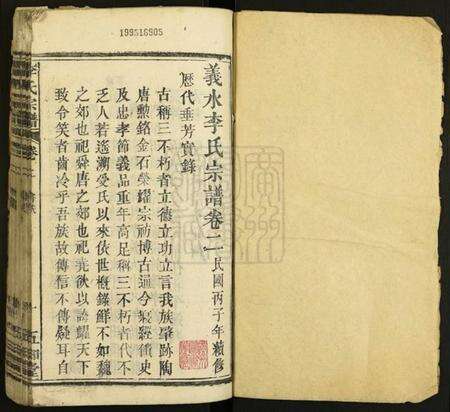 199516905
義水李氏宗譜卷二 民國丙子年續修
歷代垂芳實錄
古稱三不朽者立德立功立言我族肇跡陶
唐勲銘金石榮耀宗祊博古通今經術史
及忠孝節義品重年高足稱三不朽者代不
乏人若遙溯受氏以來依世概錄鮮不如魏
之郊也祀舜唐之郊也祀堯欲以誇耀天下
致令笑者齒冷乎吾族故傳信不傳疑耳自
李氏宗譜 卷二